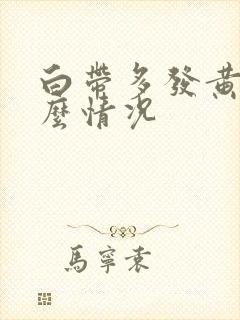 白帶多發黃
麼情況
馬寧袁